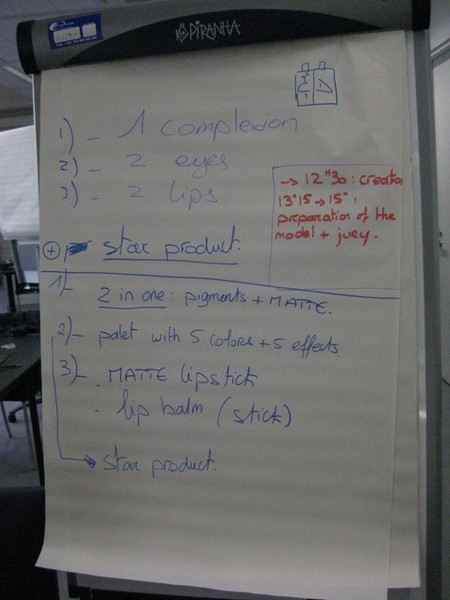 PIRANHA
1) - 1 complexion
2) - 2 eyes
3) - 2 lips
+ star product.
→ 12H30: creation
13°15 → 15°:
preparation of the
model + jury.
1)-
2 in one: pigments + MATTE.
2)- palet with 5 colors + 5 effects.
3)- . MATTE lipstick
. lip balm (stick)
→ star product.